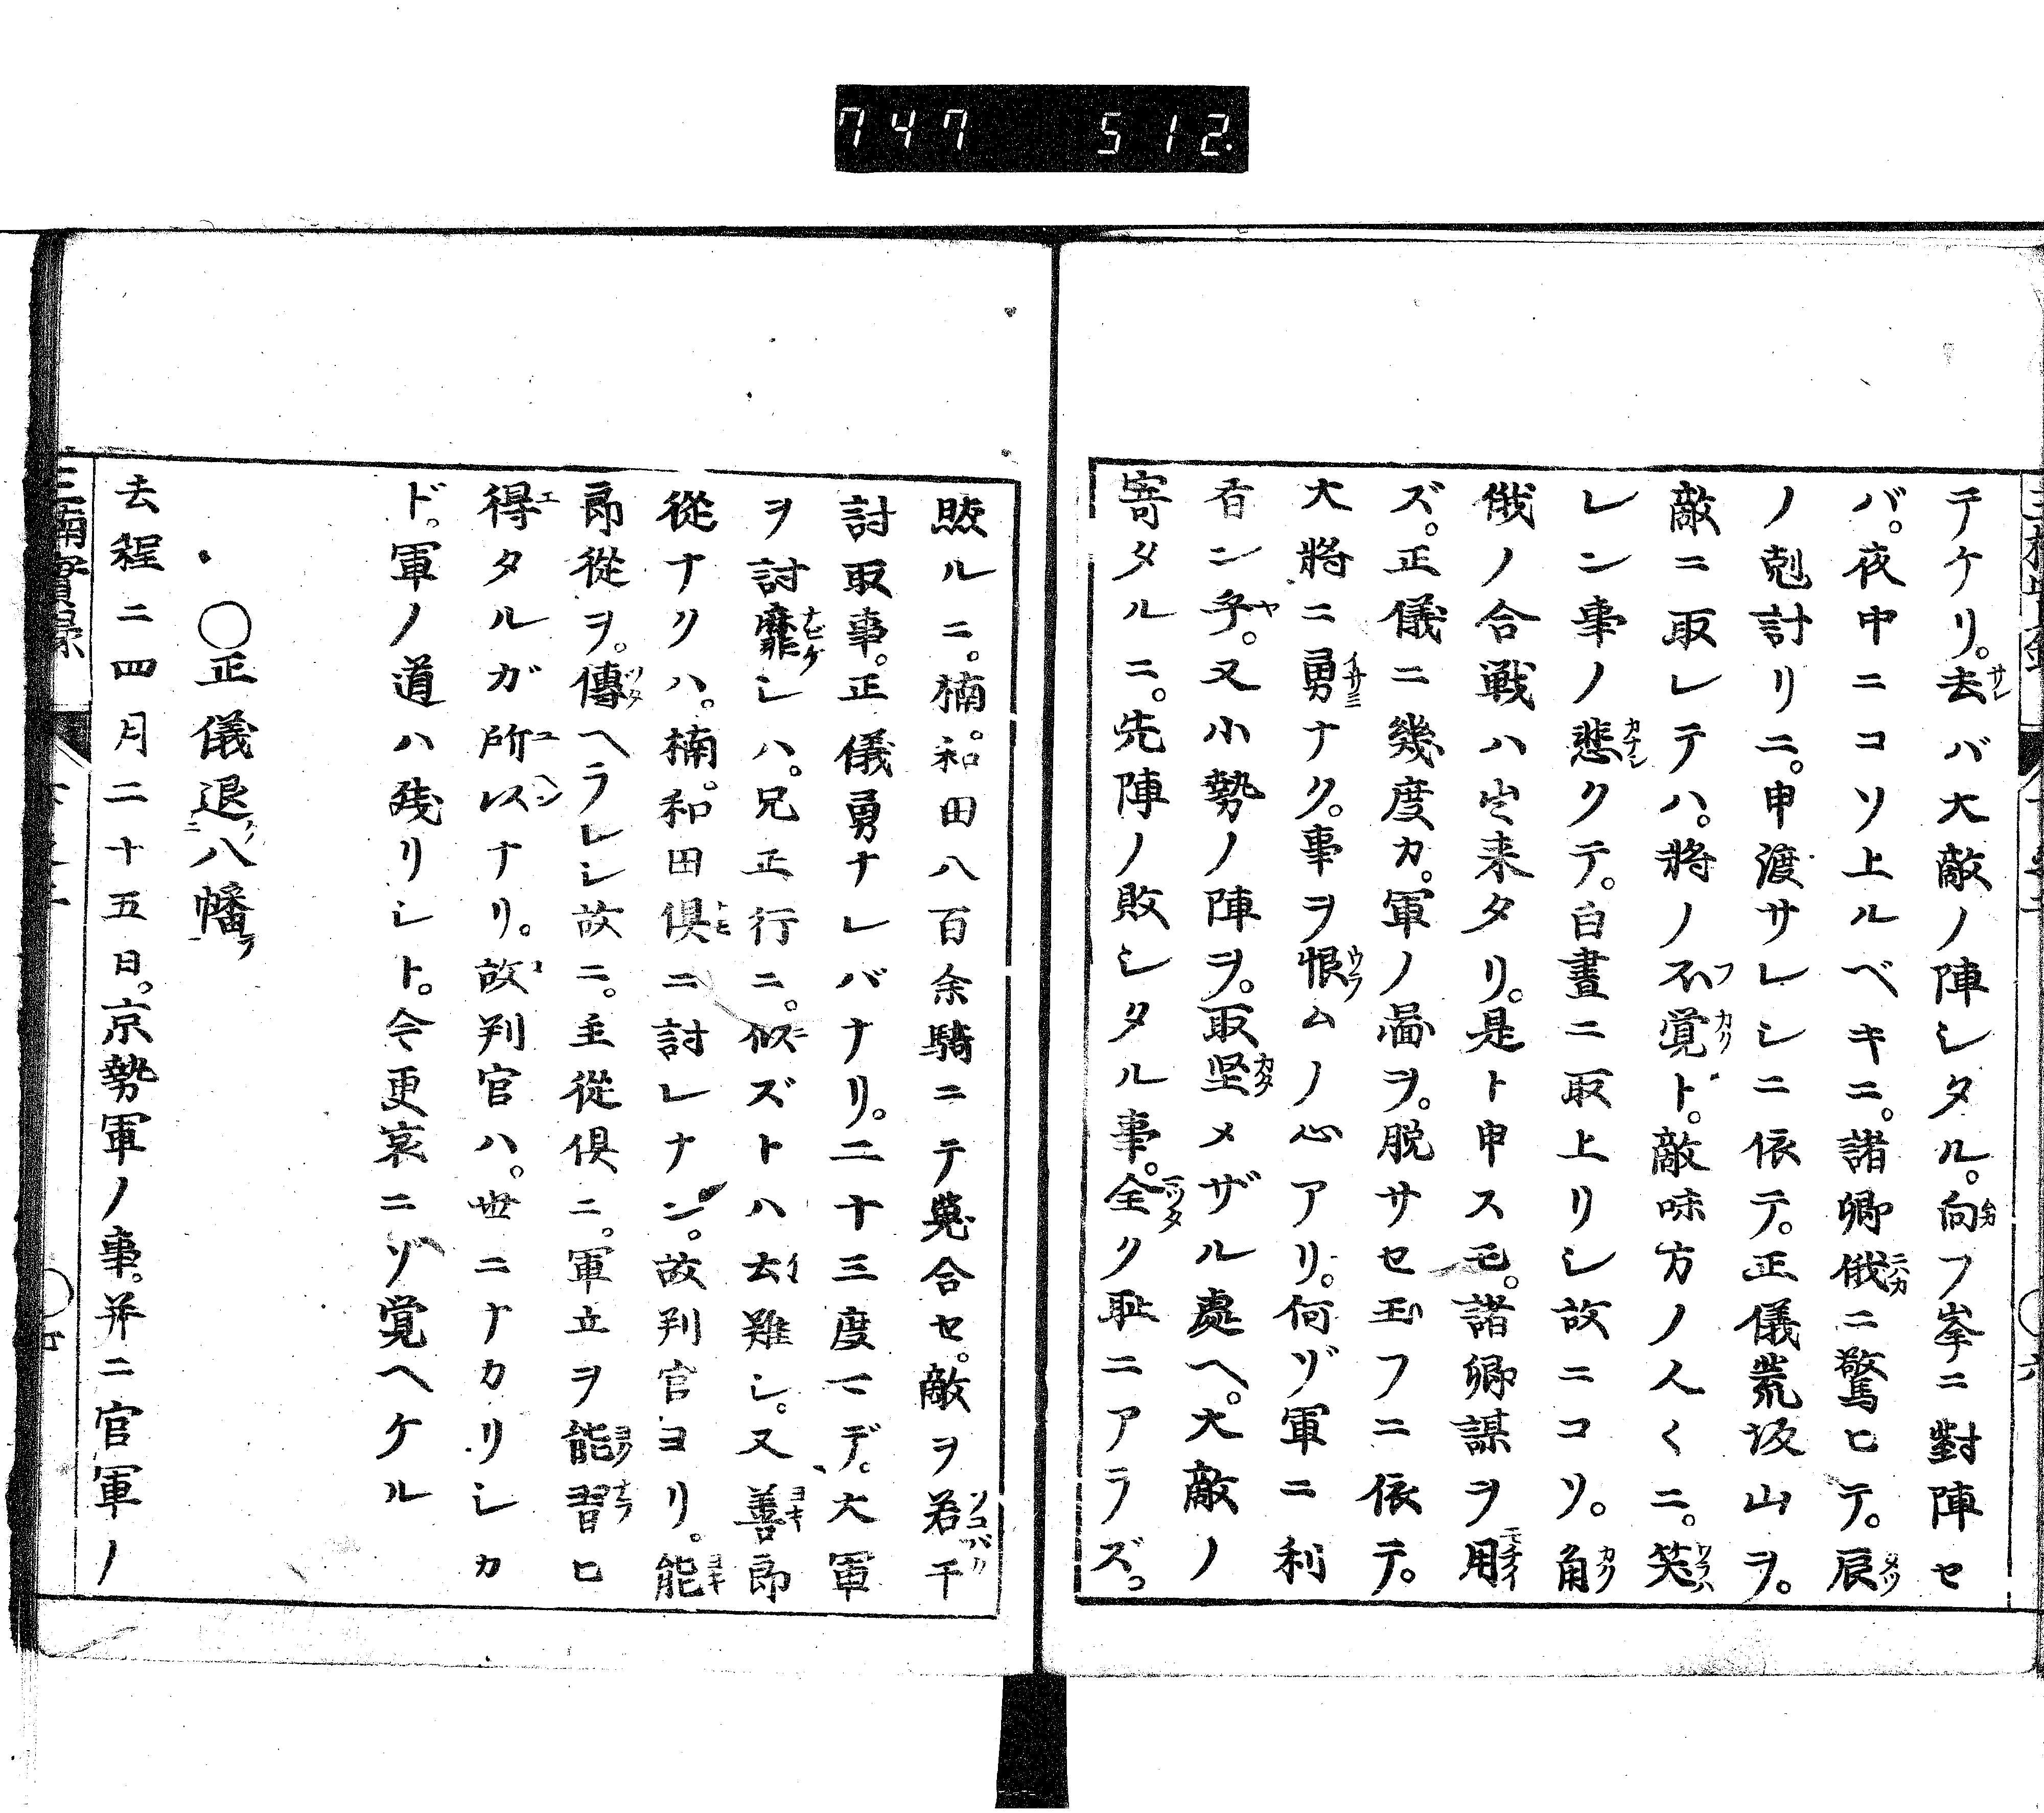 747 512.
テケリ。去バ大敵ノ陣シタル。向フ峯ニ對陣セ
バ。夜中ニコソ上ルベキニ。諸卿俄ニ驚ヒテ。辰
ノ剋討リニ。申渡サレシニ依テ。正儀荒坂山ヲ。
敵ニ取レテハ。將ノ不覚ト。敵味方ノ人〱ニ。笑
レン事ノ悲クテ。白晝ニ取上リシ故ニコソ。角
俄ノ合戦ハ出来タリ。是ト申スモ。諸卿謀ヲ用
ズ。正儀ニ幾度カ。軍ノ啚ヲ。脱サセ玉フニ依テ。
大將ニ勇ナク。事ヲ恨ムノ心アリ。何ゾ軍ニ利
有ン乎。又小勢ノ陣ヲ。取堅メザル處ヘ。大敵ノ
寄タルニ。先陣ノ敗シタル事。全ク恥ニアラズ。
然ルニ。楠。和田八百余騎ニテ懸合セ。敵ヲ若干
討取事。正儀勇ナレバナリ。二十三度マデ。大軍
ヲ討靡シハ。兄正行ニ。似ズトハ云難シ。又善郎
從ナクハ。楠。和田倶ニ討レナン。故判官ヨリ。能
郎從ヲ。傳ヘラレシ故ニ。主從倶ニ。軍立ヲ能習ヒ
得タルガ所以ナリ。故判官ハ。世ニナカリシカ
ド。軍ノ道ハ残リシト。今更哀ニゾ覚ヘケル
〇正儀退八幡
去程ニ四月二十五日。京勢軍ノ事。并ニ官軍ノ